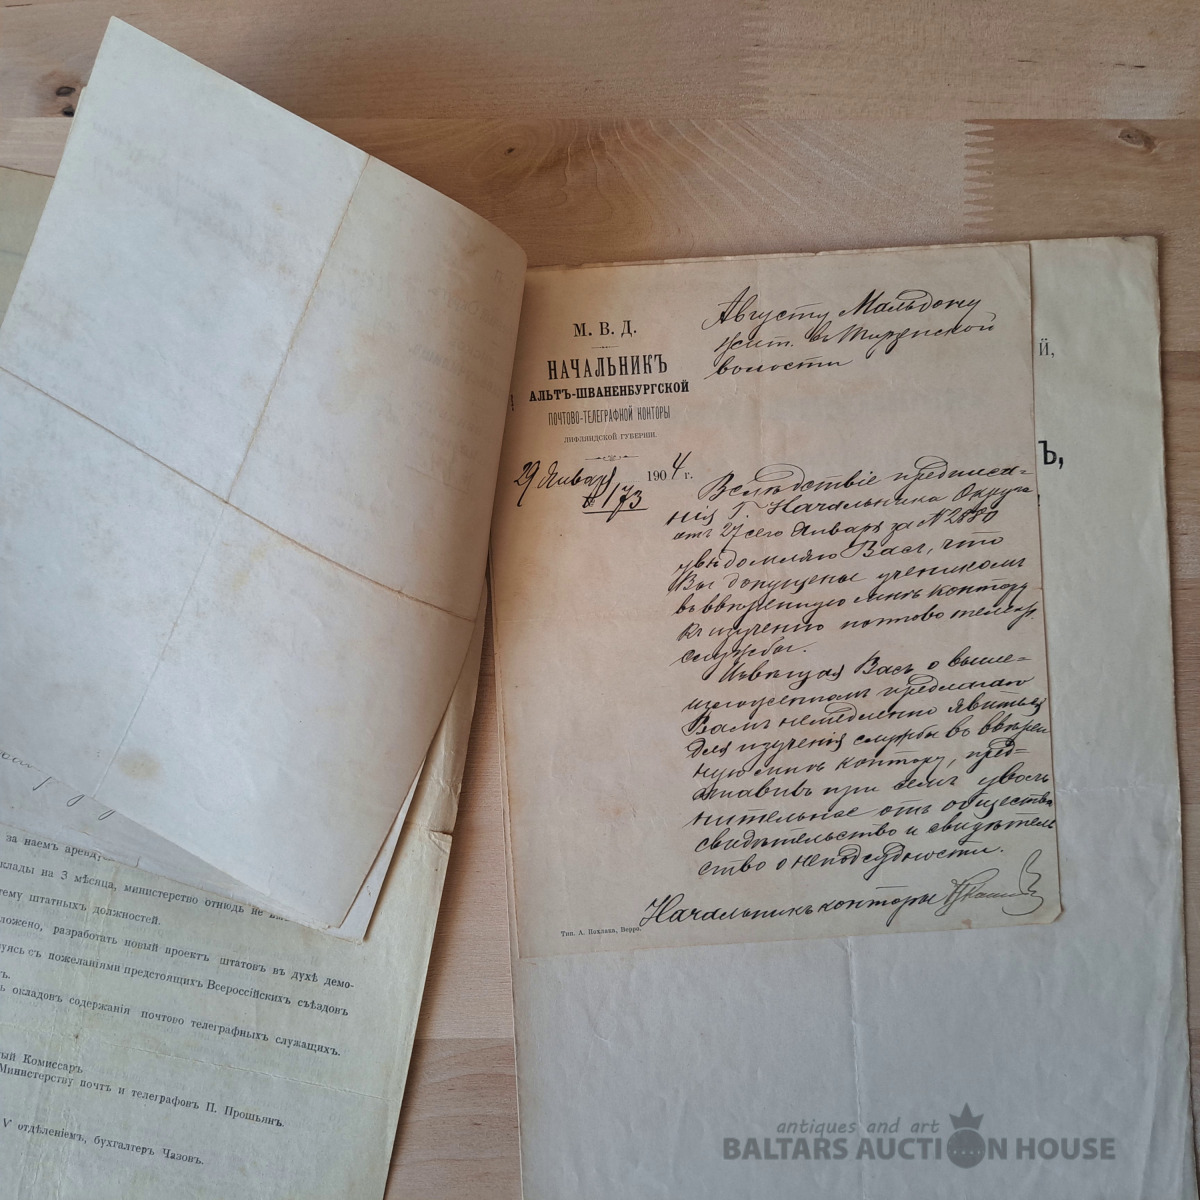 М. В. Д.
НАЧАЛЬНИКЪ
АЛЬТЪ-ШВАНЕНБУРГСКОЙ
ПОЧТОВО-ТЕЛЕГРАФНОЙ КОНТОРЫ
ЛИФЛЯНДСКОЙ ГУБЕРНІИ.
29 Января 1904 г.
№ 173
Августу Мальдону
жит. въ Тирзенской
волости
Вслѣдствіе предписа-
нія Г. Начальника Округа
отъ 27 сего Января за № 2880
увѣдомляю Васъ, что
Вы допущены ученикомъ
во ввѣренную мнѣ контору
къ изученію почтово телегр.
службы.
Извѣщая Васъ о выше-
изложенномъ предлагаю
Вамъ немедленно явиться
для изученія службы во ввѣрен
ную мнѣ контору, пред-
ставивъ при семъ уволь
нительное отъ общества
свидѣтельство и свидѣтель
ство о неподсудности.
Начальникъ конторы
Тип. А. Похлака, Верро.
Й,
Ъ,
за наемъ
клады на 3 мѣсяца, министерство отнюдь не
тему штатныхъ должностей.
ложено, разработать новый проектъ штатовъ въ духѣ демо-
уясь съ пожеланіями предстоящихъ Всероссійскихъ съѣздовъ
ъ.
ъ окладовъ содержанія почтово телеграфныхъ служащихъ.
ный Комиссаръ
Министерству почтъ и телеграфовъ П. Прошьянъ.
V отдѣленіемъ, бухгалтеръ Чазовъ.
antiques and art
BALTARS AUCTION HOUSE